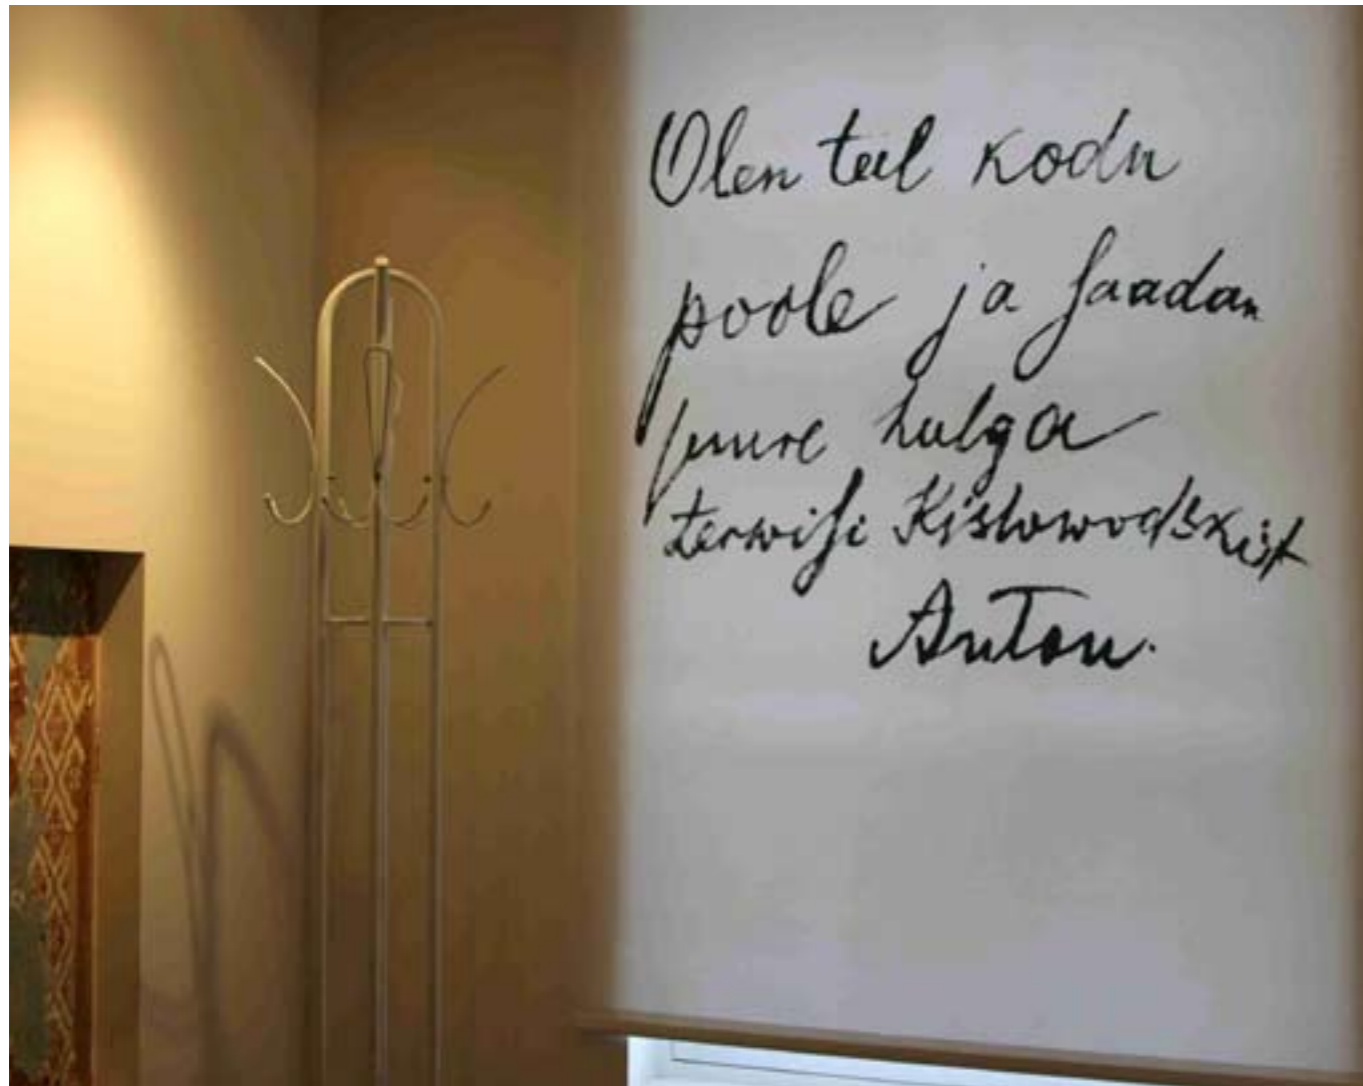 Olen teel kodu
poole ja saadan
suure hulga
terwisi Kislowodskist
Anton.